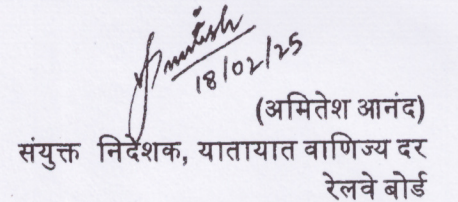 Amitesh
18/02/25
(अमितेश आनंद)
संयुक्त निदेशक, यातायात वाणिज्य दर
रेलवे बोर्ड